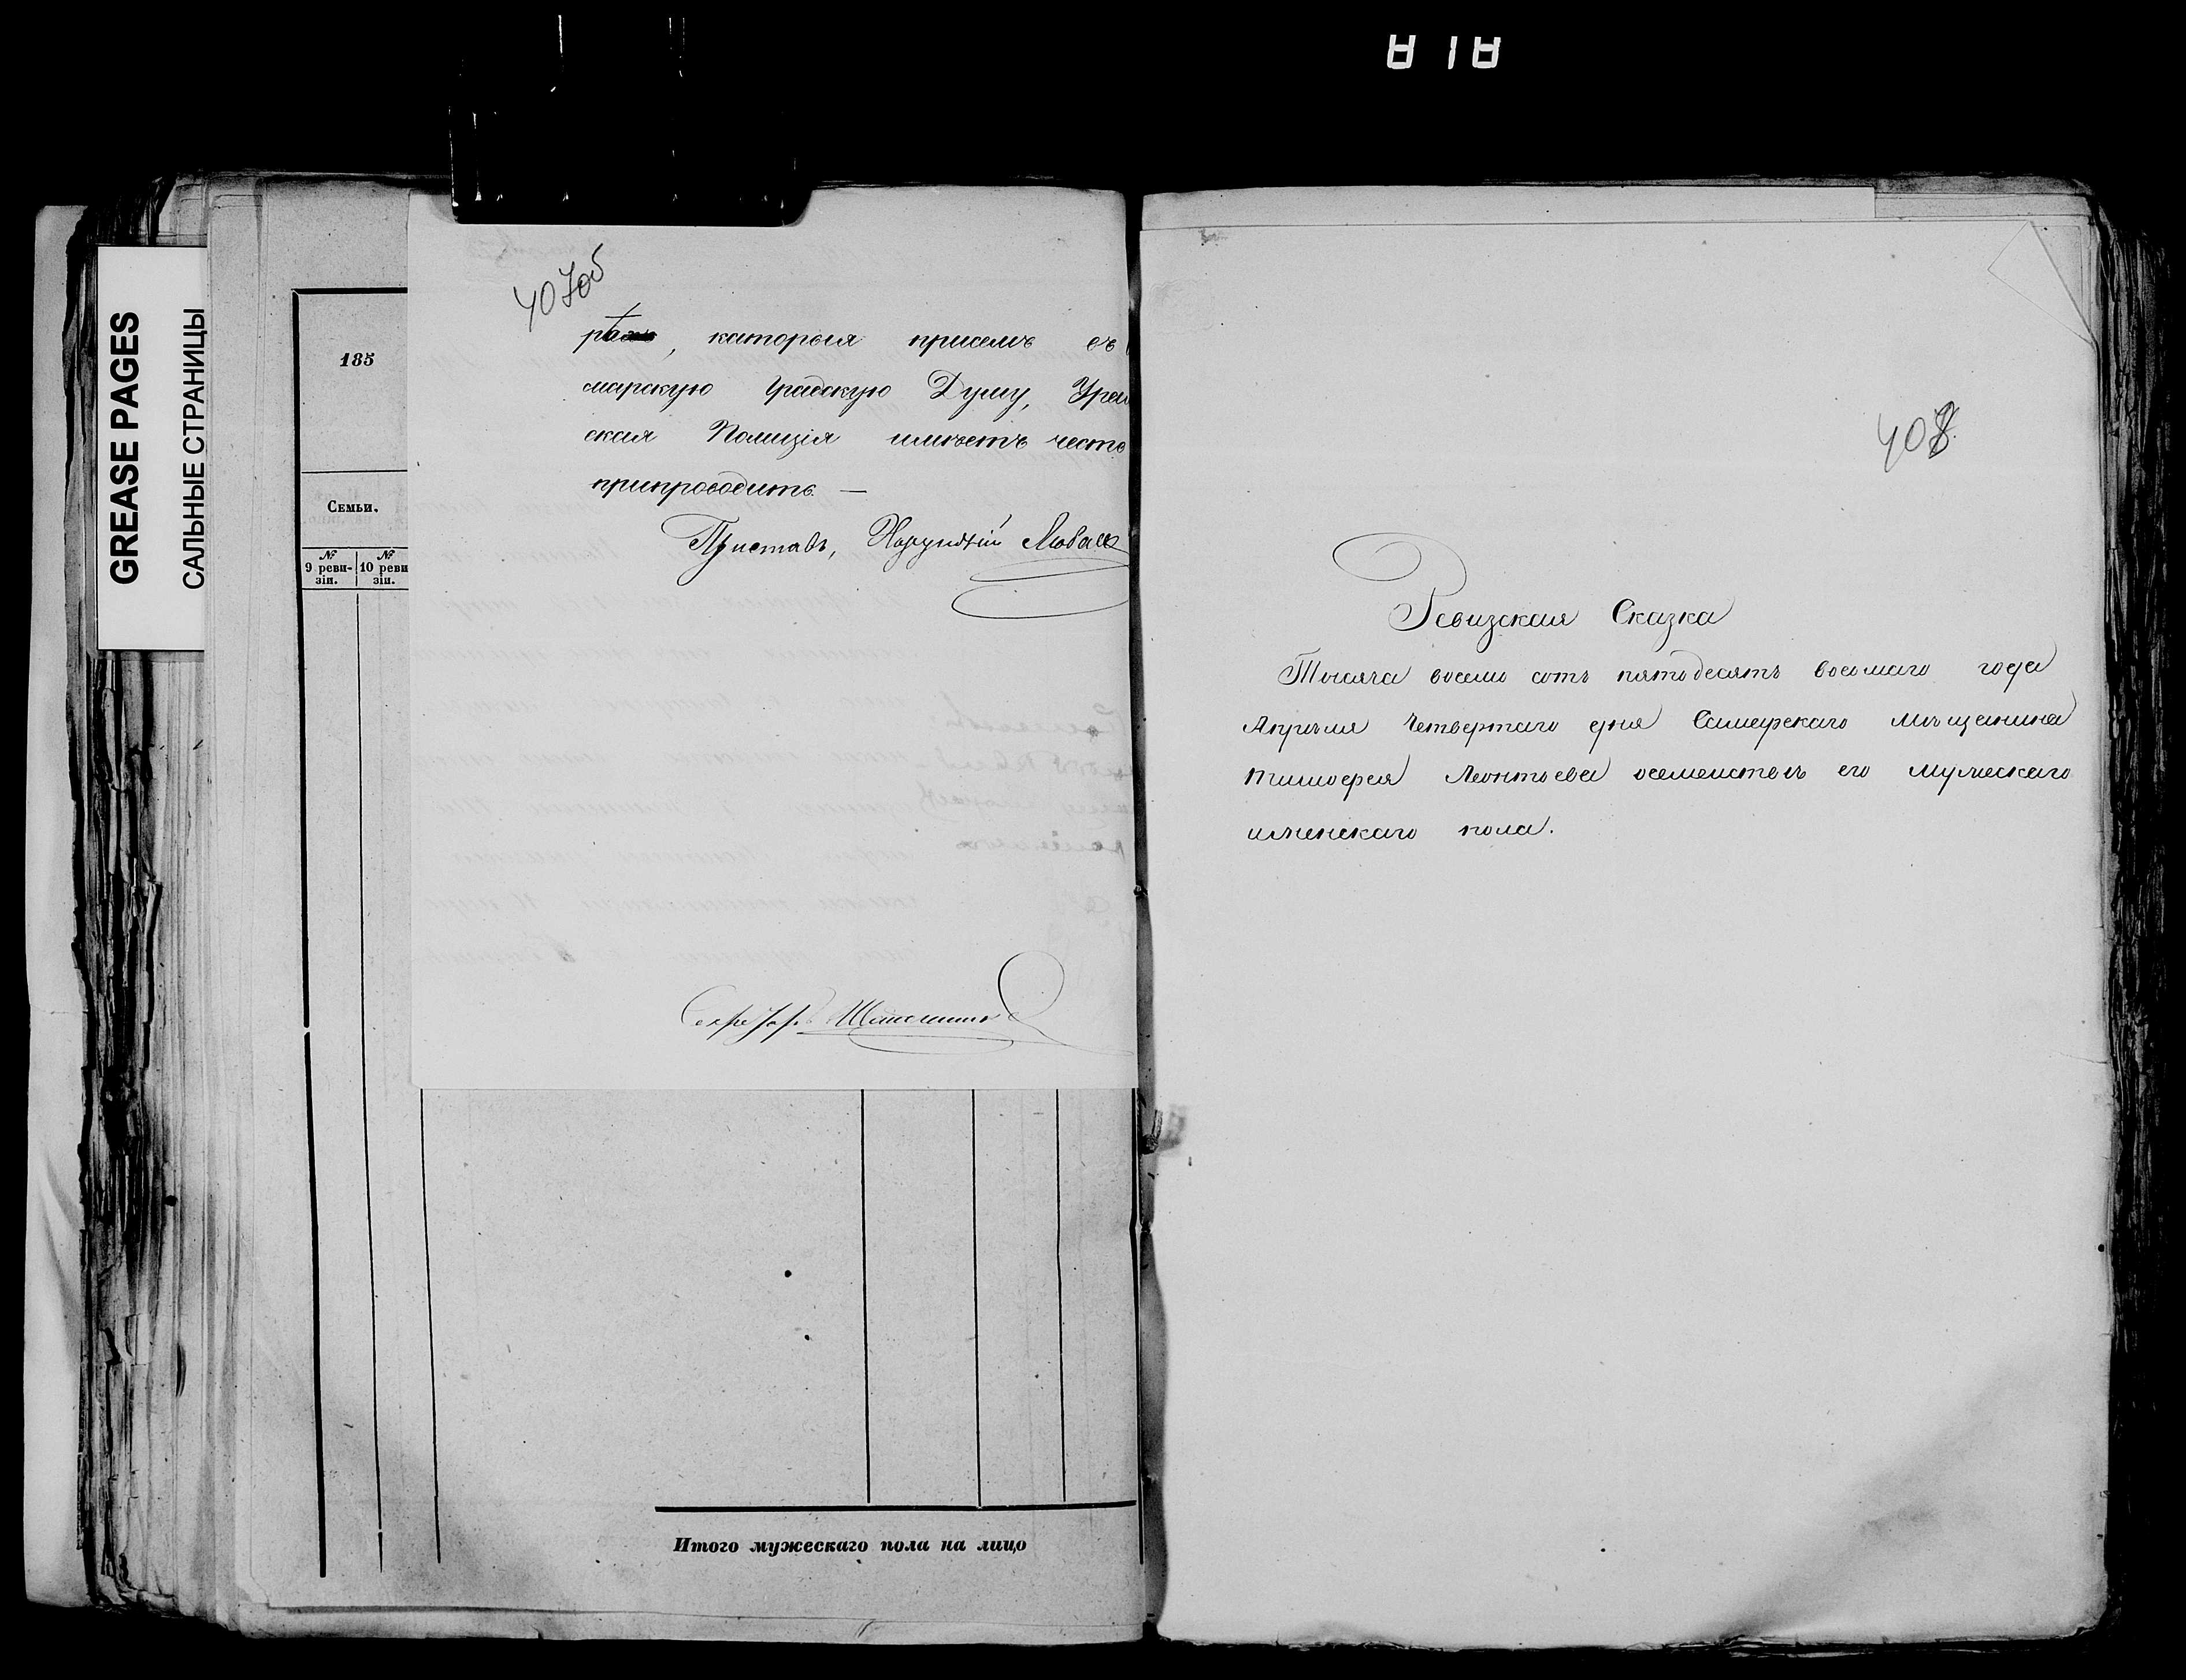 818
GREASE PAGES
САЛЬНЫЕ СТРАНИЦЫ
185
Семьи.
№ 9 реви-зіи.
№ 10 реви зіи.
407об
, которыя присемъ въ
марскую Градскую Думу,
ская Полиція имѣетъ честь
припроводить. —
Приставъ, Хорунжій
Секретарь
Итого мужескаго пола на лицо
408
Ревизская Сказка
Тысяча восемь сотъ пятьдесятъ восьмаго года
Апрѣля четвертаго дня Самарскаго мѣщанина
Тимофея Леонтьева осемействѣ его мужескаго
иженскаго пола.